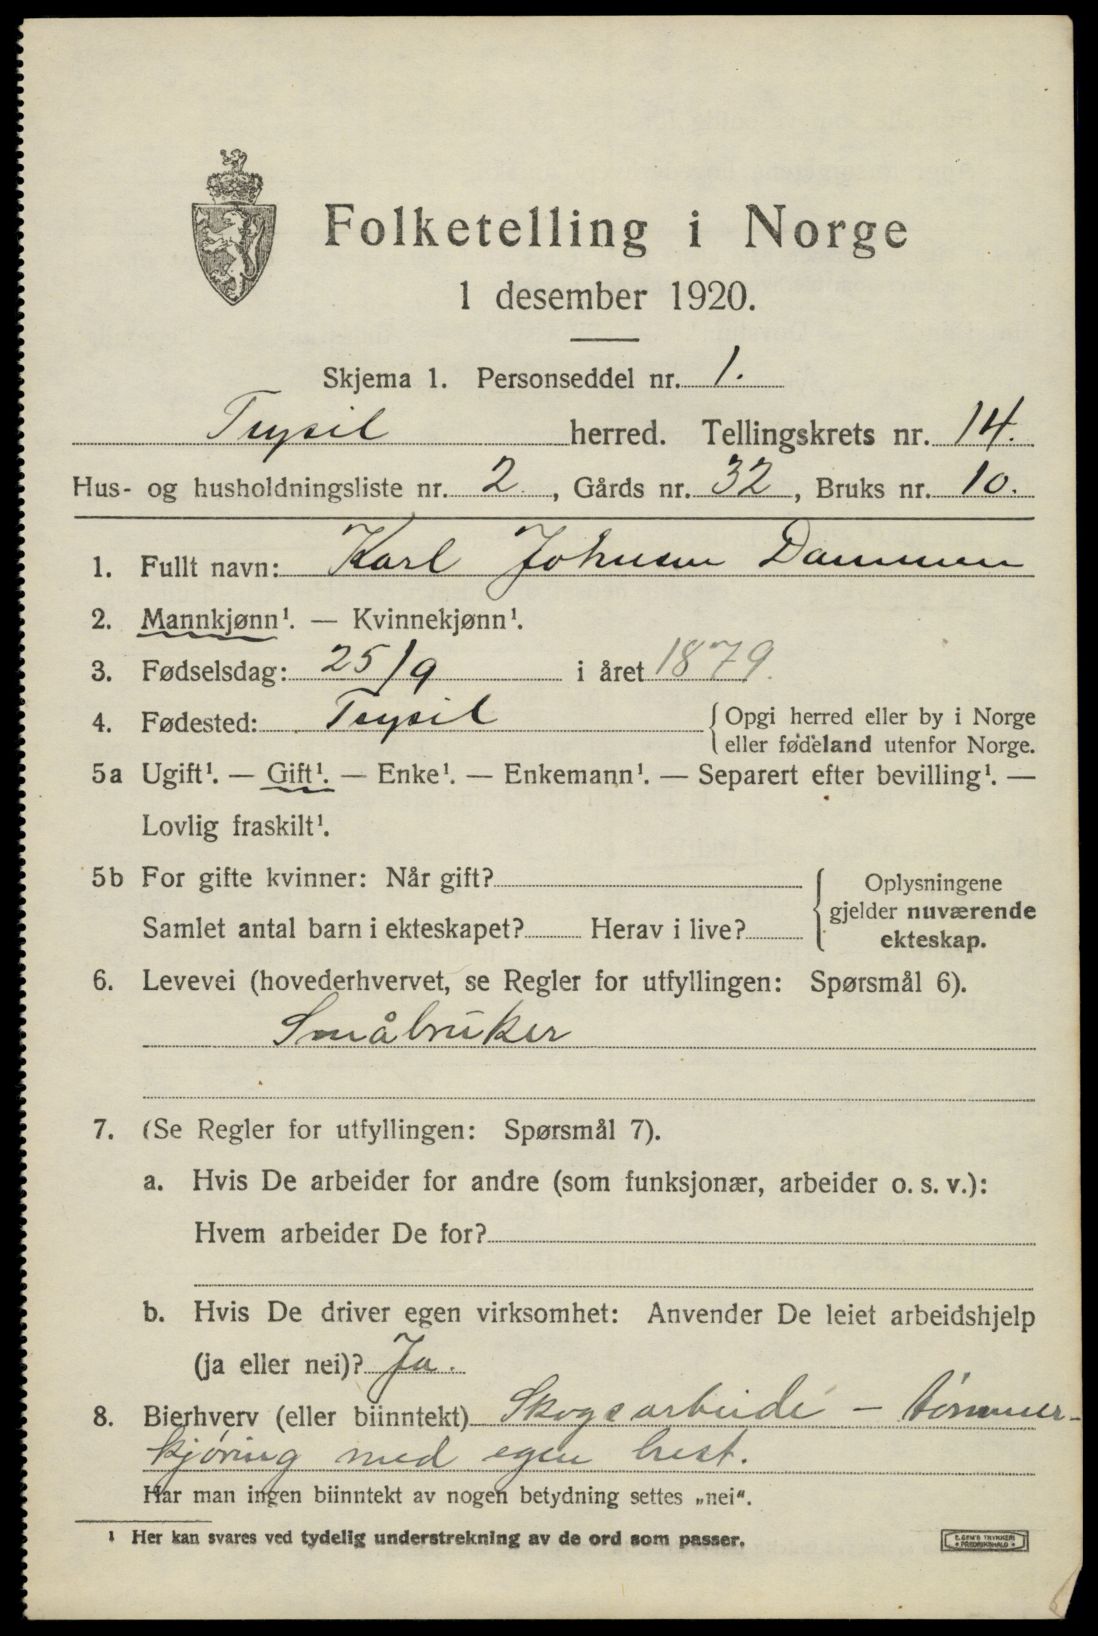 Folketelling i Norge
1 desember 1920.
Skjema 1. Personseddel nr. 1.
Trysil herred. Tellingskrets nr. 14.
Hus- og husholdningsliste nr. 2, Gårds nr. 32, Bruks nr. 10.
1. Fullt navn: Karl Johnsen Dammen
2. Mannkjønn¹. — Kvinnekjønn¹.
3. Fødselsdag: 25/9 i året 1879.
4. Fødested: Trysil
{ Opgi herred eller by i Norge
eller fødeland utenfor Norge.
5a Ugift¹. — Gift¹. — Enke¹. — Enkemann¹. — Separert efter bevilling¹. —
Lovlig fraskilt¹.
5b For gifte kvinner: Når gift?
Samlet antal barn i ekteskapet? Herav i live?
{ Oplysningene
gjelder nuværende
ekteskap.
6. Levevei (hovederhvervet, se Regler for utfyllingen: Spørsmål 6).
Småbruker
7. (Se Regler for utfyllingen: Spørsmål 7).
a. Hvis De arbeider for andre (som funksjonær, arbeider o. s. v.):
Hvem arbeider De for?
b. Hvis De driver egen virksomhet: Anvender De leiet arbeidshjelp
(ja eller nei)? Ja.
8. Bierhverv (eller biinntekt) Skogsarbeide – tømmer-
kjøring med egen hest.
Har man ingen biinntekt av nogen betydning settes „nei“.
¹ Her kan svares ved tydelig understrekning av de ord som passer.
E. SEM'S TRYKKERI
• FREDRIKSHALD •